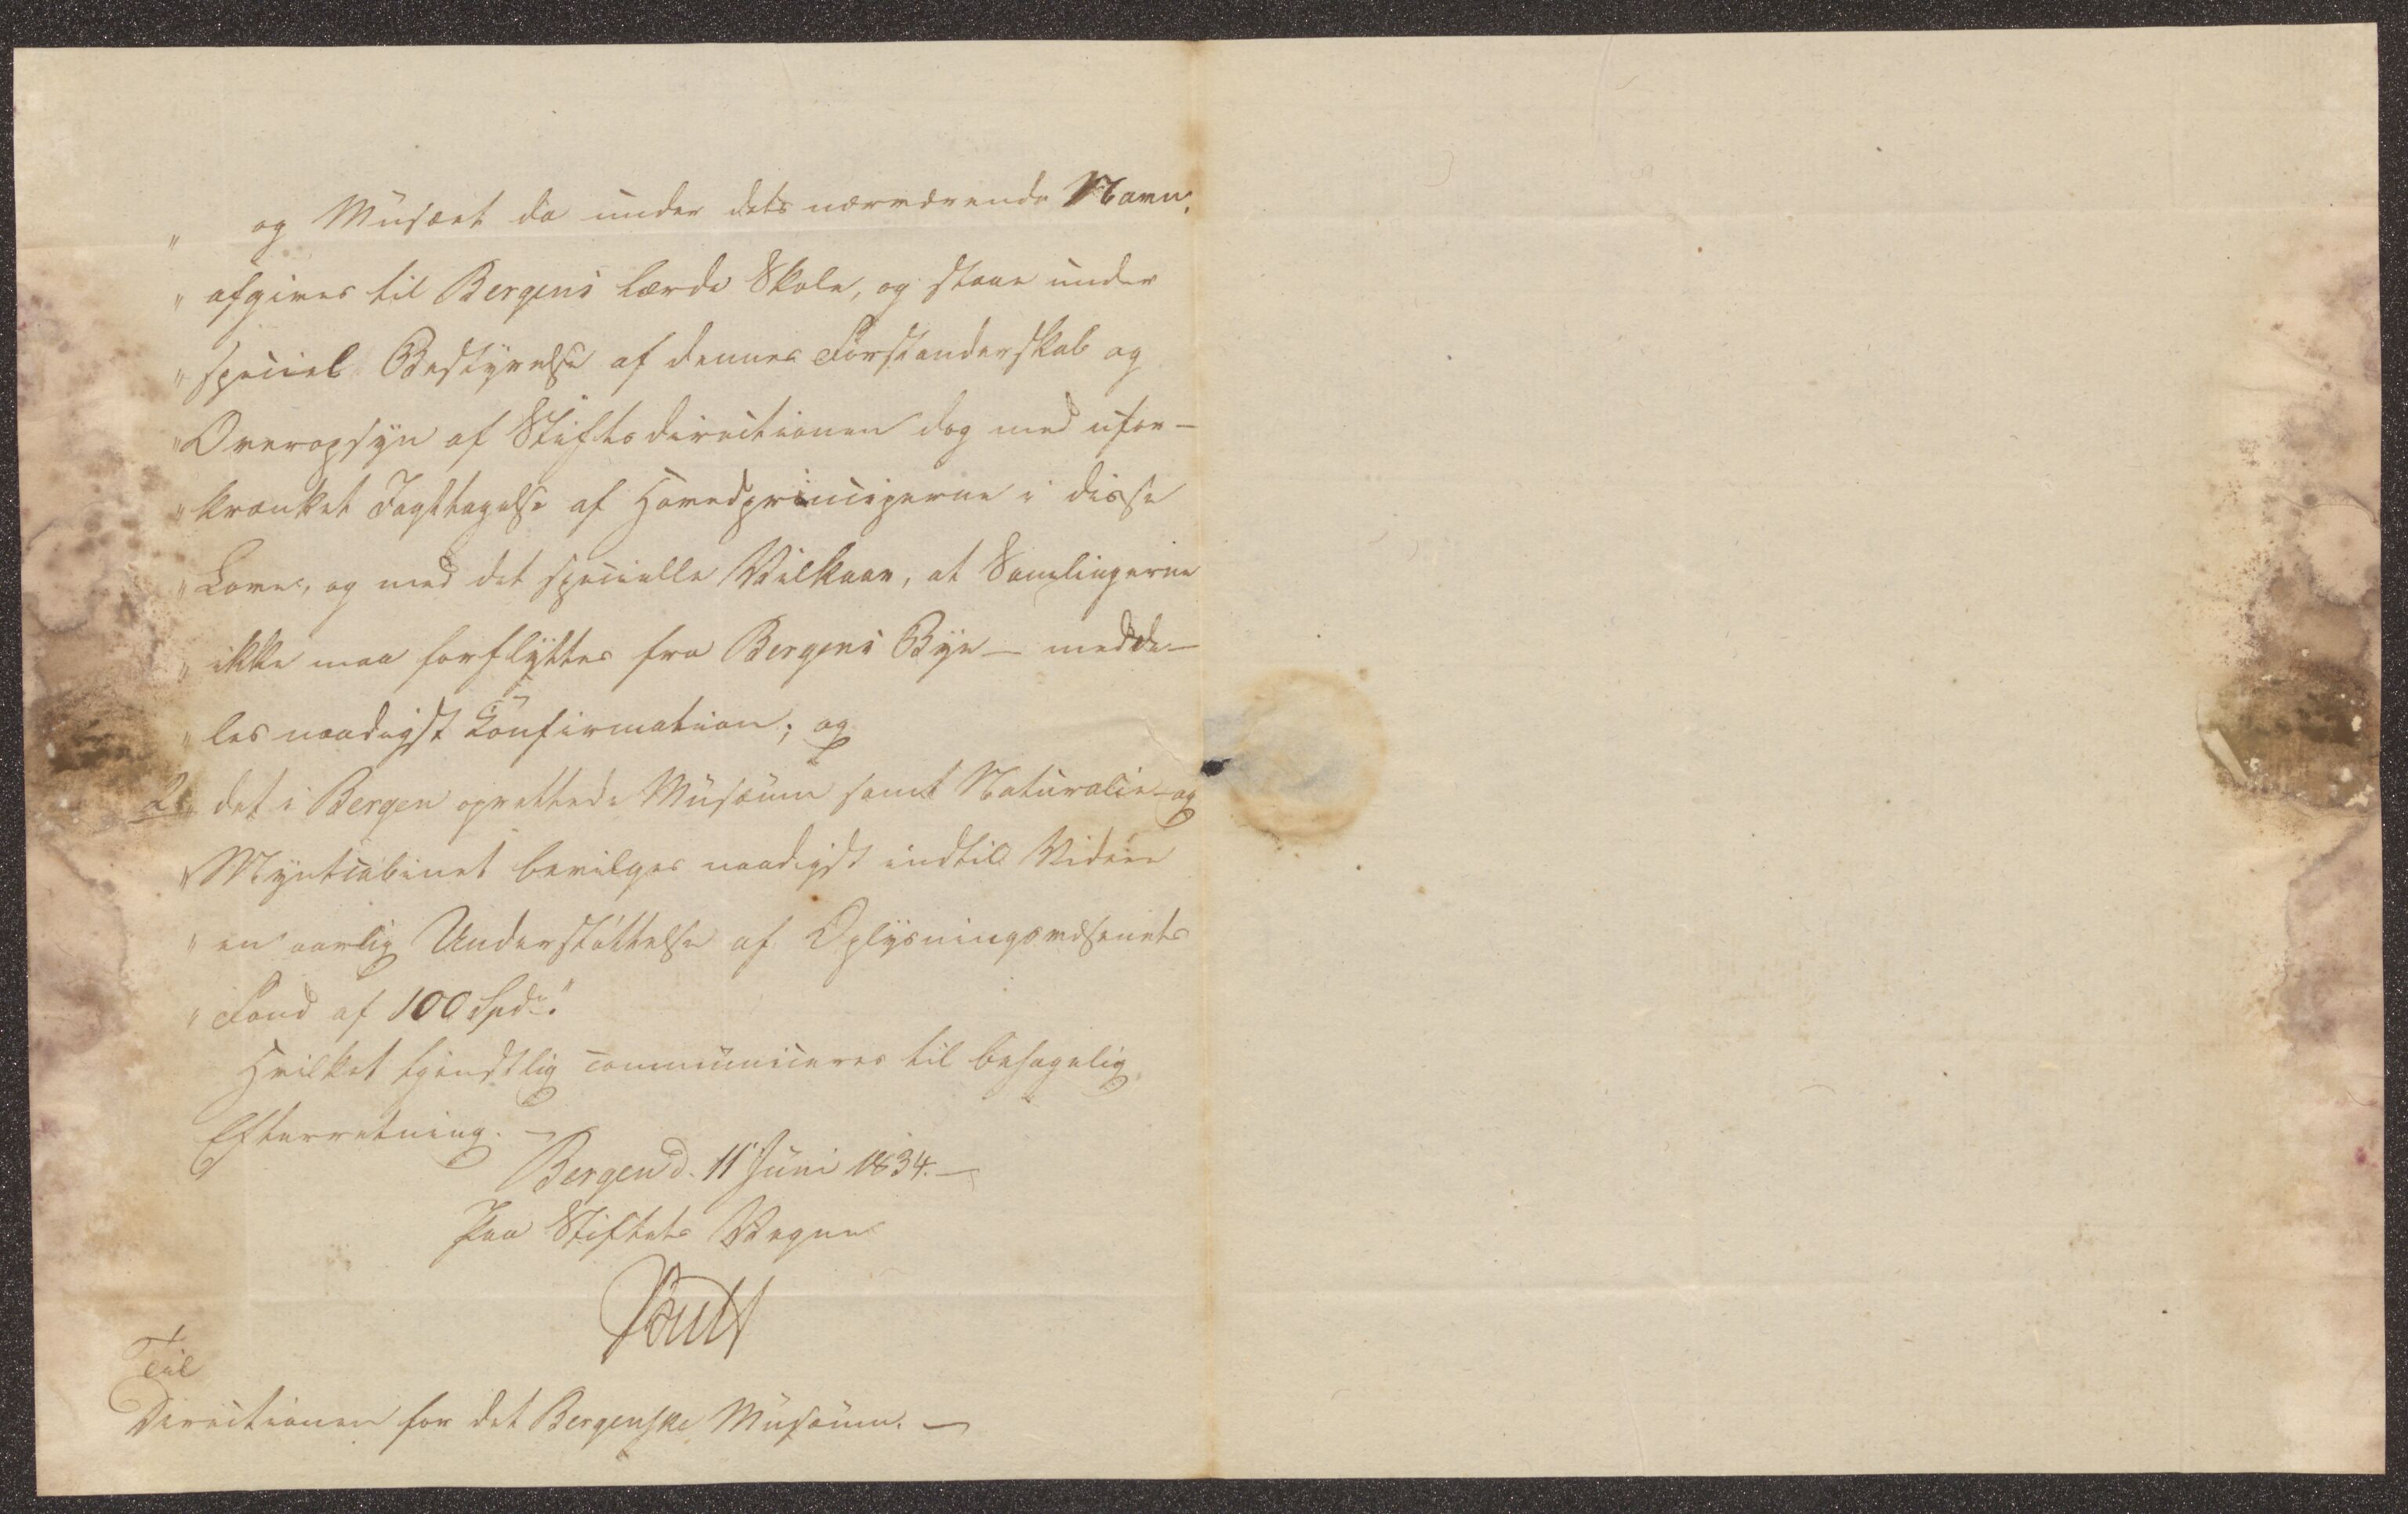 „ og Musæet da under dets nærværende Navn,
„ afgives til Bergens lærde Skole, og staae under
„ speciel Bestyrelse af dennes Forstanderskab og
„ Overopsyn af Stiftsdirectionen dog med ufor-
„ krænket Iagttagelse af Hovedprinciperne i disse
„ Love, og med det specielle Vilkaar, at Samlingerne
„ ikke maa forflyttes fra Bergens Bye — medde-
„ les naadigst Confirmation; og
2, det i Bergen oprettede Musæum samt Naturalie- og
„ Myntcabinet bevilges naadigst indtil Videre
„ en aarlig Understøttelse af Oplysningsvæsenets
„ Fond af 100 Spd."
Hvilket tjenstlig communiceres til behagelig
Efterretning. —
Bergen d. 11 Juni 1834. —
Paa Stiftets Vegne
Til
Directionen for det Bergenske Musæum. —